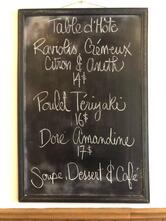 Table d'Hôte
Raviolis, Crémeux
Citron & Aneth
14$
Poulet Tériyaki
16$
Doré Amandine
17$
Soupe, Dessert & Café